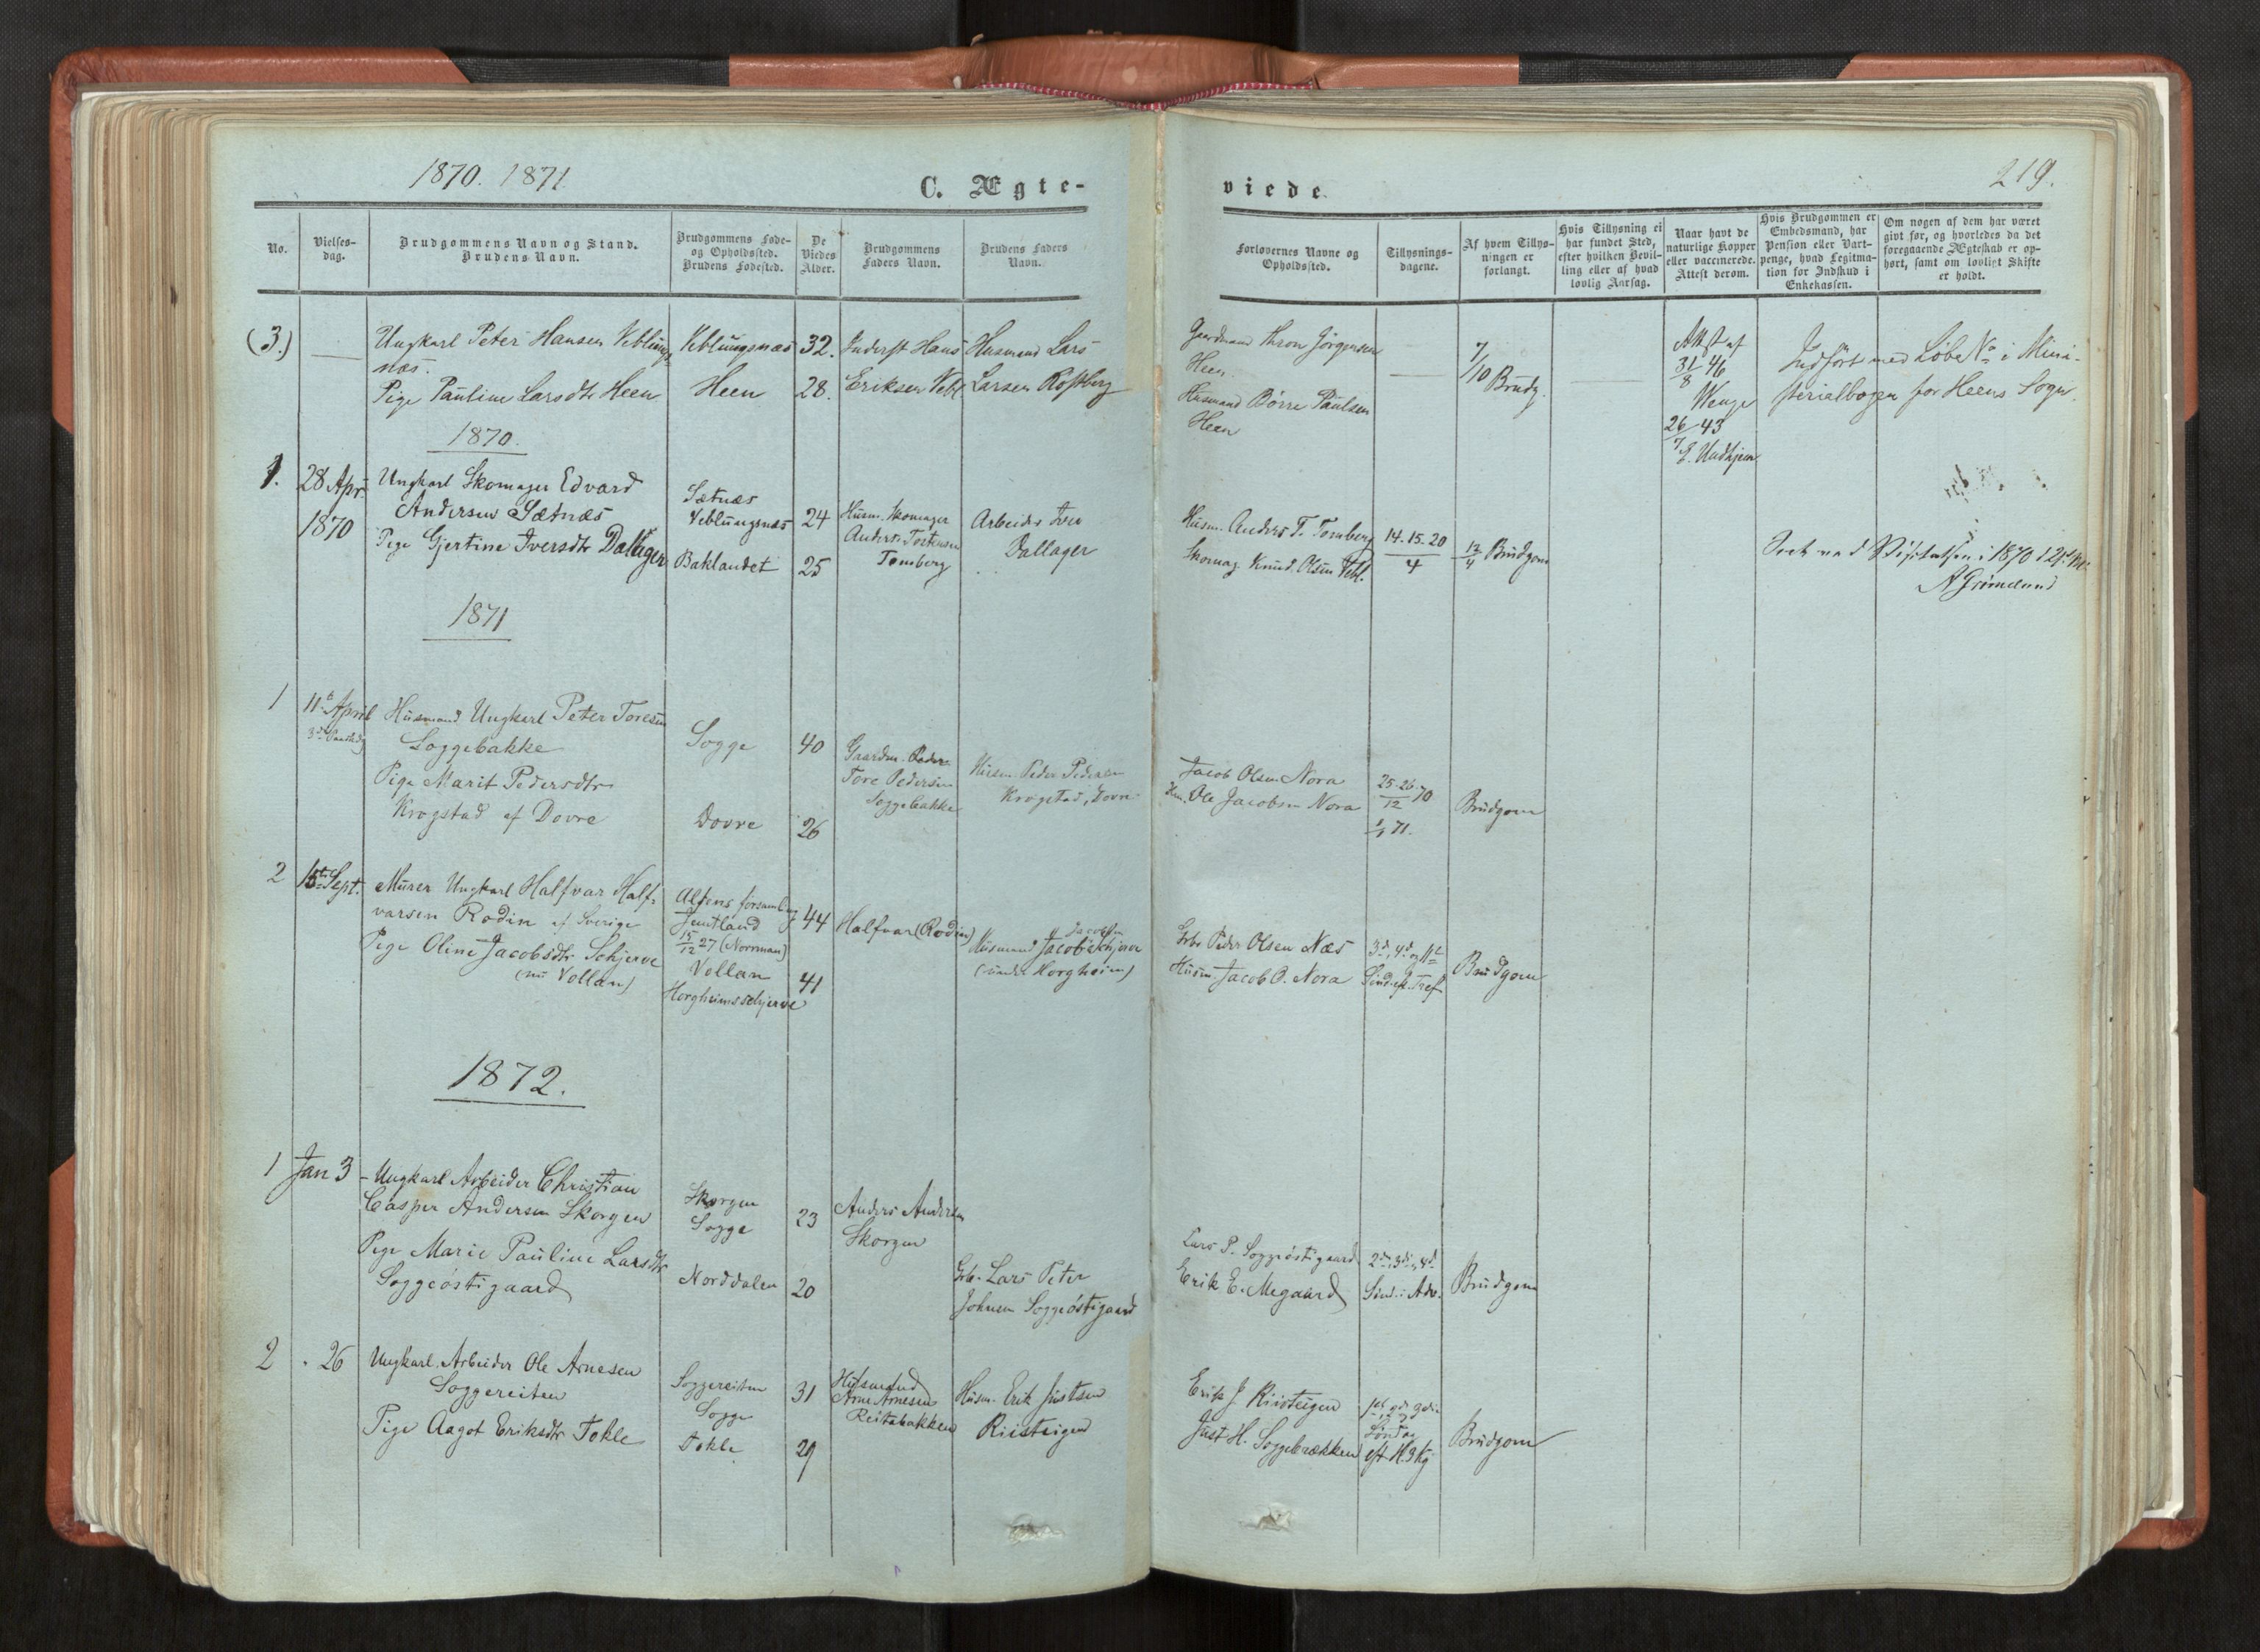 1870. 1871
C. Ægte-
viede
219.
No.
Vielses-
dag.
Brudgommens Navn og Stand.
Brudens Navn.
Brudgommens Føde-
og Opholdssted.
Brudens Fødested.
De
Viedes
Alder.
Brudgommens
Faders Navn.
Brudens Faders
Navn.
Forlovernes Navne og
Opholdssted.
Tillysnings-
dagene.
Af hvem Tillys-
ningen er
forlangt.
Hvis Tillysning ei
har fundet Sted,
efter hvilken Bevil-
ling eller af hvad
lovlig Aarsag.
Naar havt de
naturlige Kopper
eller vaccinerede.
Attest derom.
Hvis Brudgommen er
Embedsmand, har
Pension eller Vart-
penge, hvad Legitima-
tion for Indskud i
Enkekassen.
Om nogen af dem har været
givt før, og hvorledes da det
foregaaende Ægteskab er op-
hørt, samt om lovligt Skifte
er holdt.
(3.)
Ungkarl Peter Hansen Veblungs
næs.
Pige Pauline Larsdtr Heen
Veblungsnæs
Heen
32.
28.
Inderst Hans
Eriksen Vebl.
Husmand Lars
Larsen Rosberg
Gaardmand Thron Jörgensen
Heen.
Husmand Börre Paulsen
Heen
7/10 Brudg.
Attest af
31/8 46
Wenge
26/7 43
Indfört med Löbe No i Mini-
sterialbogen for Heens Sogn.
1870.
1. 28 Apr
1870
Ungkarl Skomager Edvard
Andersen Sætnæs
Pige Gjertine Iversdtr Dallager
Sætnæs
Veblungsnæs
Baklandet
24
25
Husm. Skomager
Anders Tostensen
Tomberg
Arbeider Iver
Dallager
Husm. Anders T. Tomberg
Skomag. Knud Olsen Vebl.
14. 15. 20
4
12/4 Brudgom
1871
1
11te April
Husmand Ungkarl Peter Toresen
Soggebakke
Pige Marit Pedersdtr
Krogstad af Dovre
Sogge
Dovre
40
26
Gaardm.
Tore Pedersen
Soggebakke
Husm. Peder Pedersen
Krogstad, Dovre
Jacob Olsen Nora
Ole Jacobsen Nora
25. 26/12 70
1/1 71.
Brudgom
2
15de Sept.
Murer Ungkarl Halfvar Half-
varsen Rodin af Sverige
Pige Oline Jacobsdtr Schjerve
(nu Vollan)
Jemtland
15/12 27 (Norrman)
Vollan
Horgheimsschjerve
44
41
Halfvar (Rodin)
Jacobsen
Husmand Jacob Schjerve
(under Horgheim)
Grbr. Peder Olsen Næs
Husm. Jacob O. Nora
3d, 4d og 11te
Sönd. eft. Tref
Brudgom
1872.
1 Jan 3
Ungkarl Arbeider Christian
Casper Andersen Skorgen
Pige Marie Pauline Larsdtr
Soggeöstigaard
Skorgen
Sogge
Norddalen
23
20
Anders Andersen
Skorgen
Grbr. Lars Peter
Johnsen Soggeöstigaard
Lars P. Soggeöstigaard
Erik E. Megaard
2den, 3die, 4de
Sönd. i Adv.
Brudgom
2 " 26
Ungkarl. Arbeider Ole Arnesen
Soggereiten
Pige Aagot Eriksdtr Tokle
Soggereiten
Sogge
Tokle
31
29
Husmand
Arne Arnesen
Reitebakken
Husm. Erik Justsen
Riisteigen
Erik J. Riisteigen
Just H. Soggebrækken
1ste 2den 3die
Söndag
eft. H. 3 Kg.
Brudgom